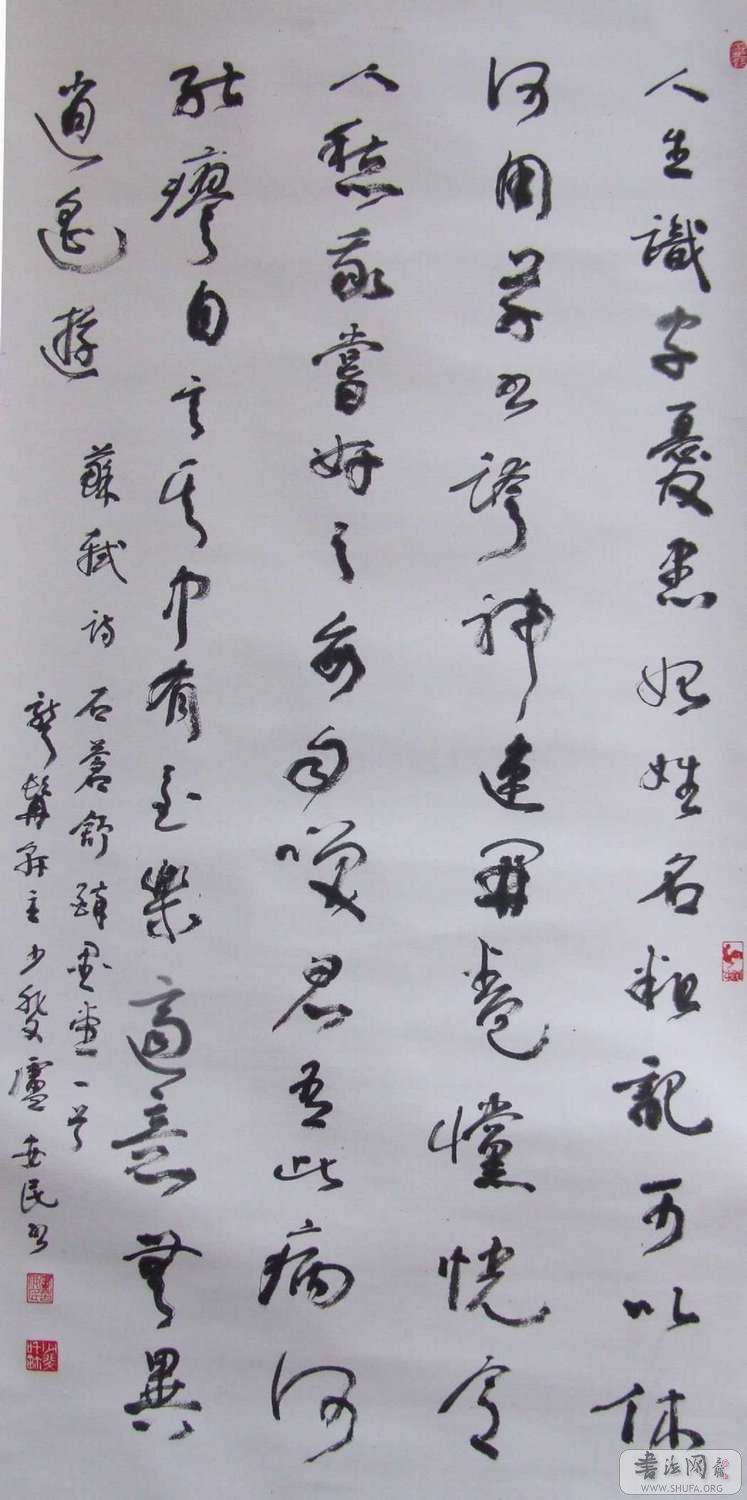 人生識字憂患始姓名粗記可以休
何用草書誇神速開卷戃恍令
人愁我嘗好之每自咲君有此病何
能瘳自言其中有至樂適意無異
逍遙遊
蘇軾詩 石蒼舒醉墨堂一首
主少廬安民書
书法网
WWW.SHUFA.ORG